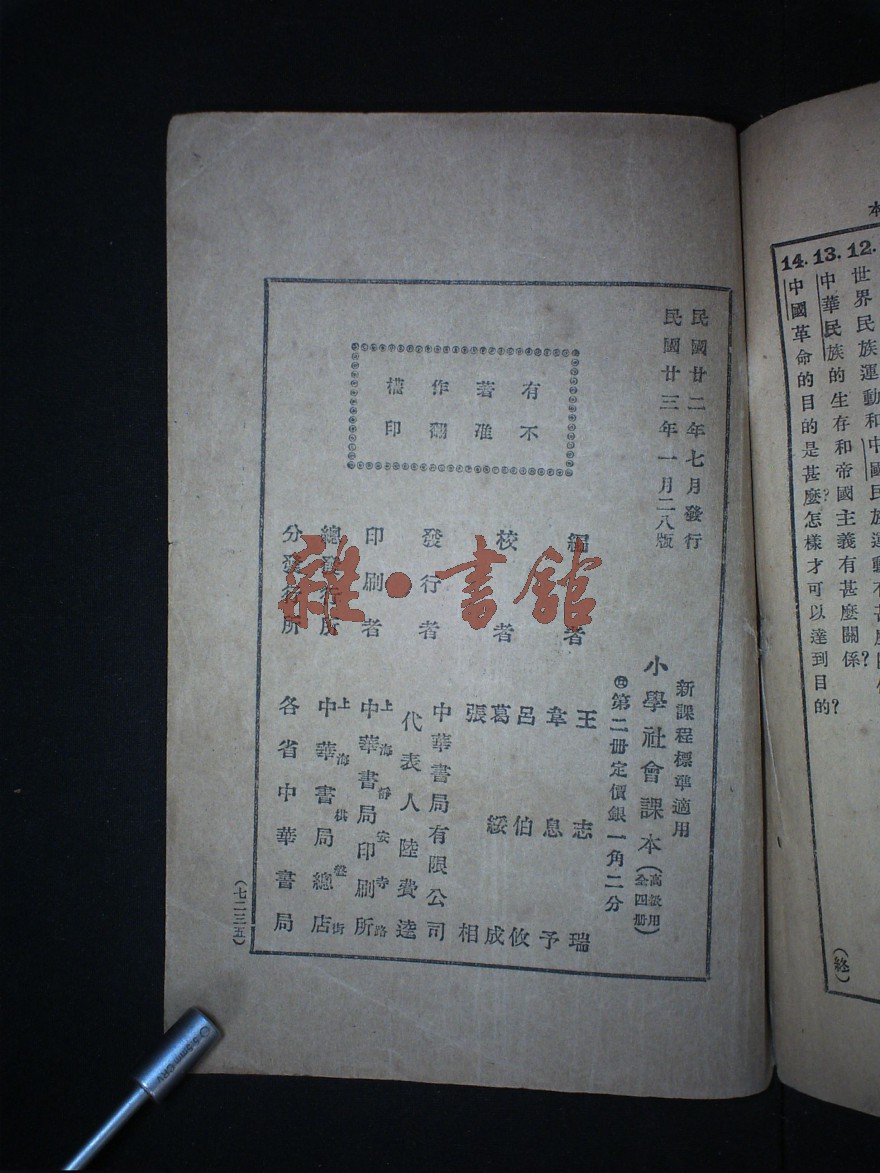 本
12.世界民族運動和中國民族運動有甚麼關係?
13.中華民族的生存和帝國主義有甚麼關係?
14.中國革命的目的是甚麼?怎樣才可以達到目的?
(終)
民國廿二年七月發行
民國廿三年一月二八版
有著作權
不准翻印
新課程標準適用
小學社會課本(高級用全四册)
第二册定價銀一角二分
編者 王志瑞
韋息予
校者 呂伯攸
葛綏成
張相
發行者 中華書局有限公司
代表人陸費逵
印刷者 上海靜安寺路
中華書局印刷所
總發行所 上海棋盤街
中華書局總店
分發行所 各省中華書局
(七二三五)
雜·書館